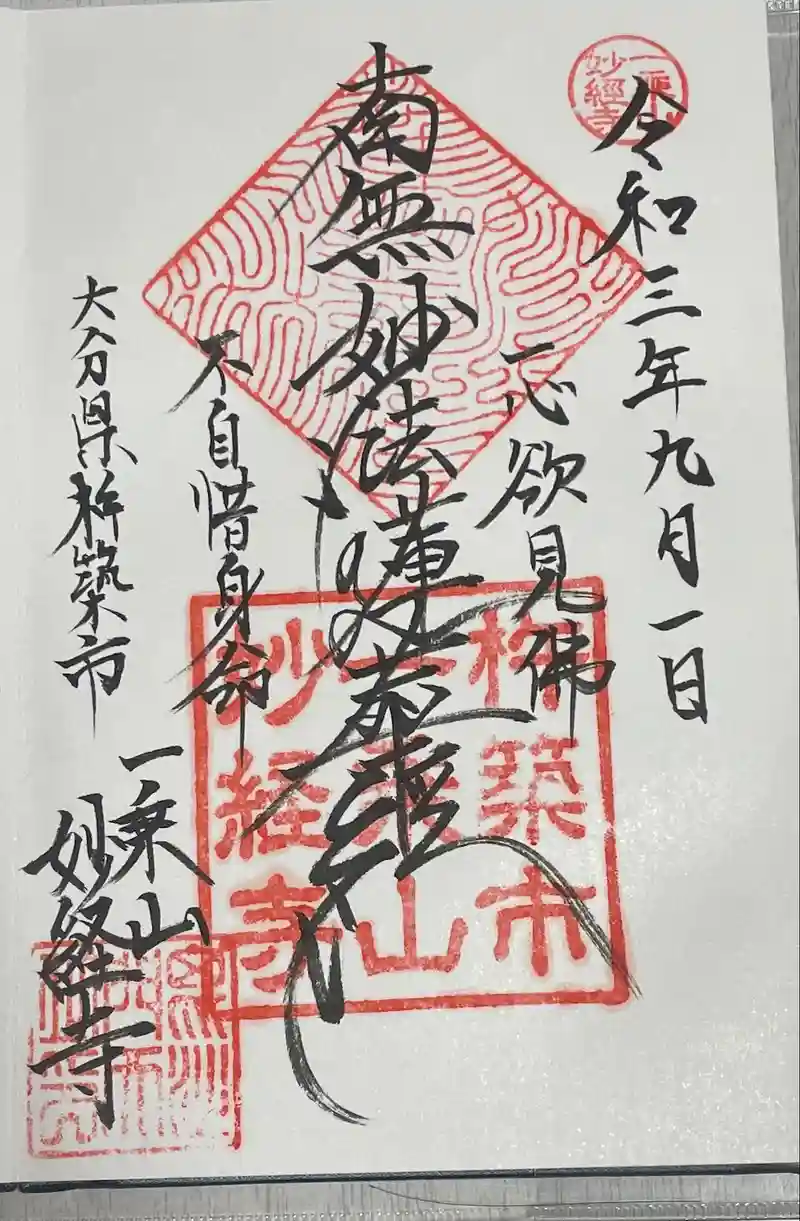 一乗山
妙經寺
令和三年九月一日
一心欲見佛
南無妙法蓮華經
不自惜身命
大分県杵築市
一乗山
妙経寺
杵築市
一乗山
妙経寺